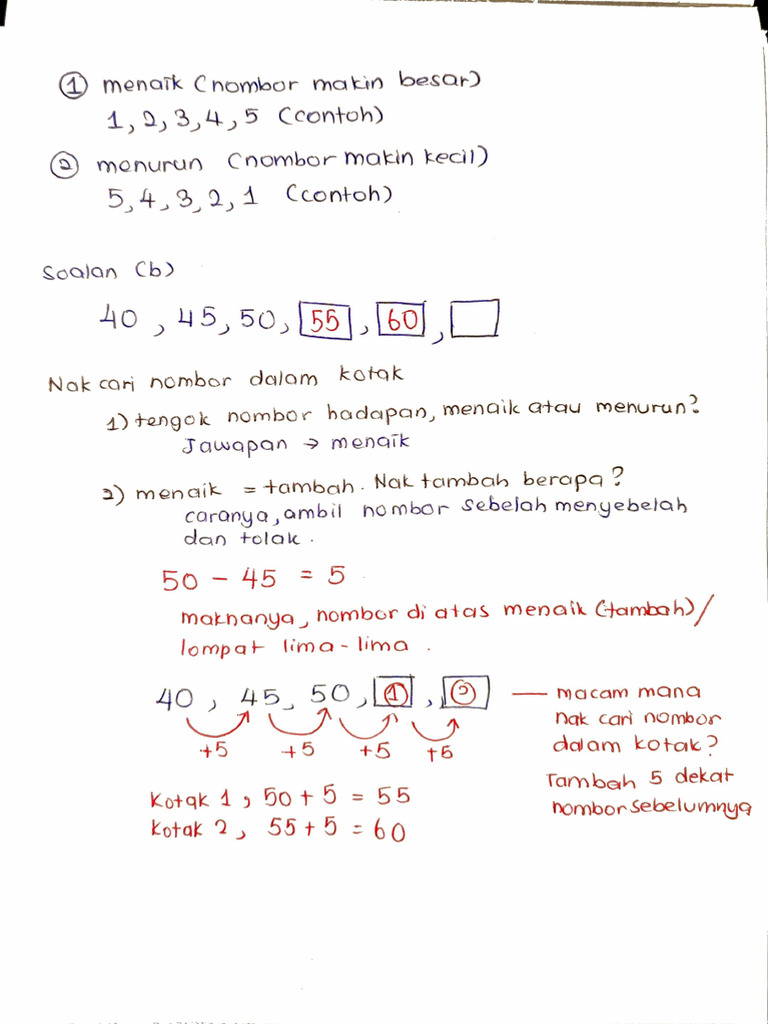 ① menaik (nombor makin besar)
1, 2, 3, 4, 5 (contoh)
② menurun (nombor makin kecil)
5, 4, 3, 2, 1 (contoh)
Soalan (b)
40, 45, 50, 55, 60,
Nak cari nombor dalam kotak
1) tengok nombor hadapan, menaik atau menurun?
Jawapan → menaik
2) menaik = tambah. Nak tambah berapa?
caranya, ambil nombor sebelah menyebelah
dan tolak.
50 - 45 = 5
maknanya, nombor di atas menaik (tambah)/
lompat lima-lima.
40, 45, 50, ①, ②
+5 +5 +5 +5
— macam mana
nak cari nombor
dalam kotak?
Tambah 5 dekat
nombor sebelumnya
Kotak 1, 50 + 5 = 55
Kotak 2, 55 + 5 = 60